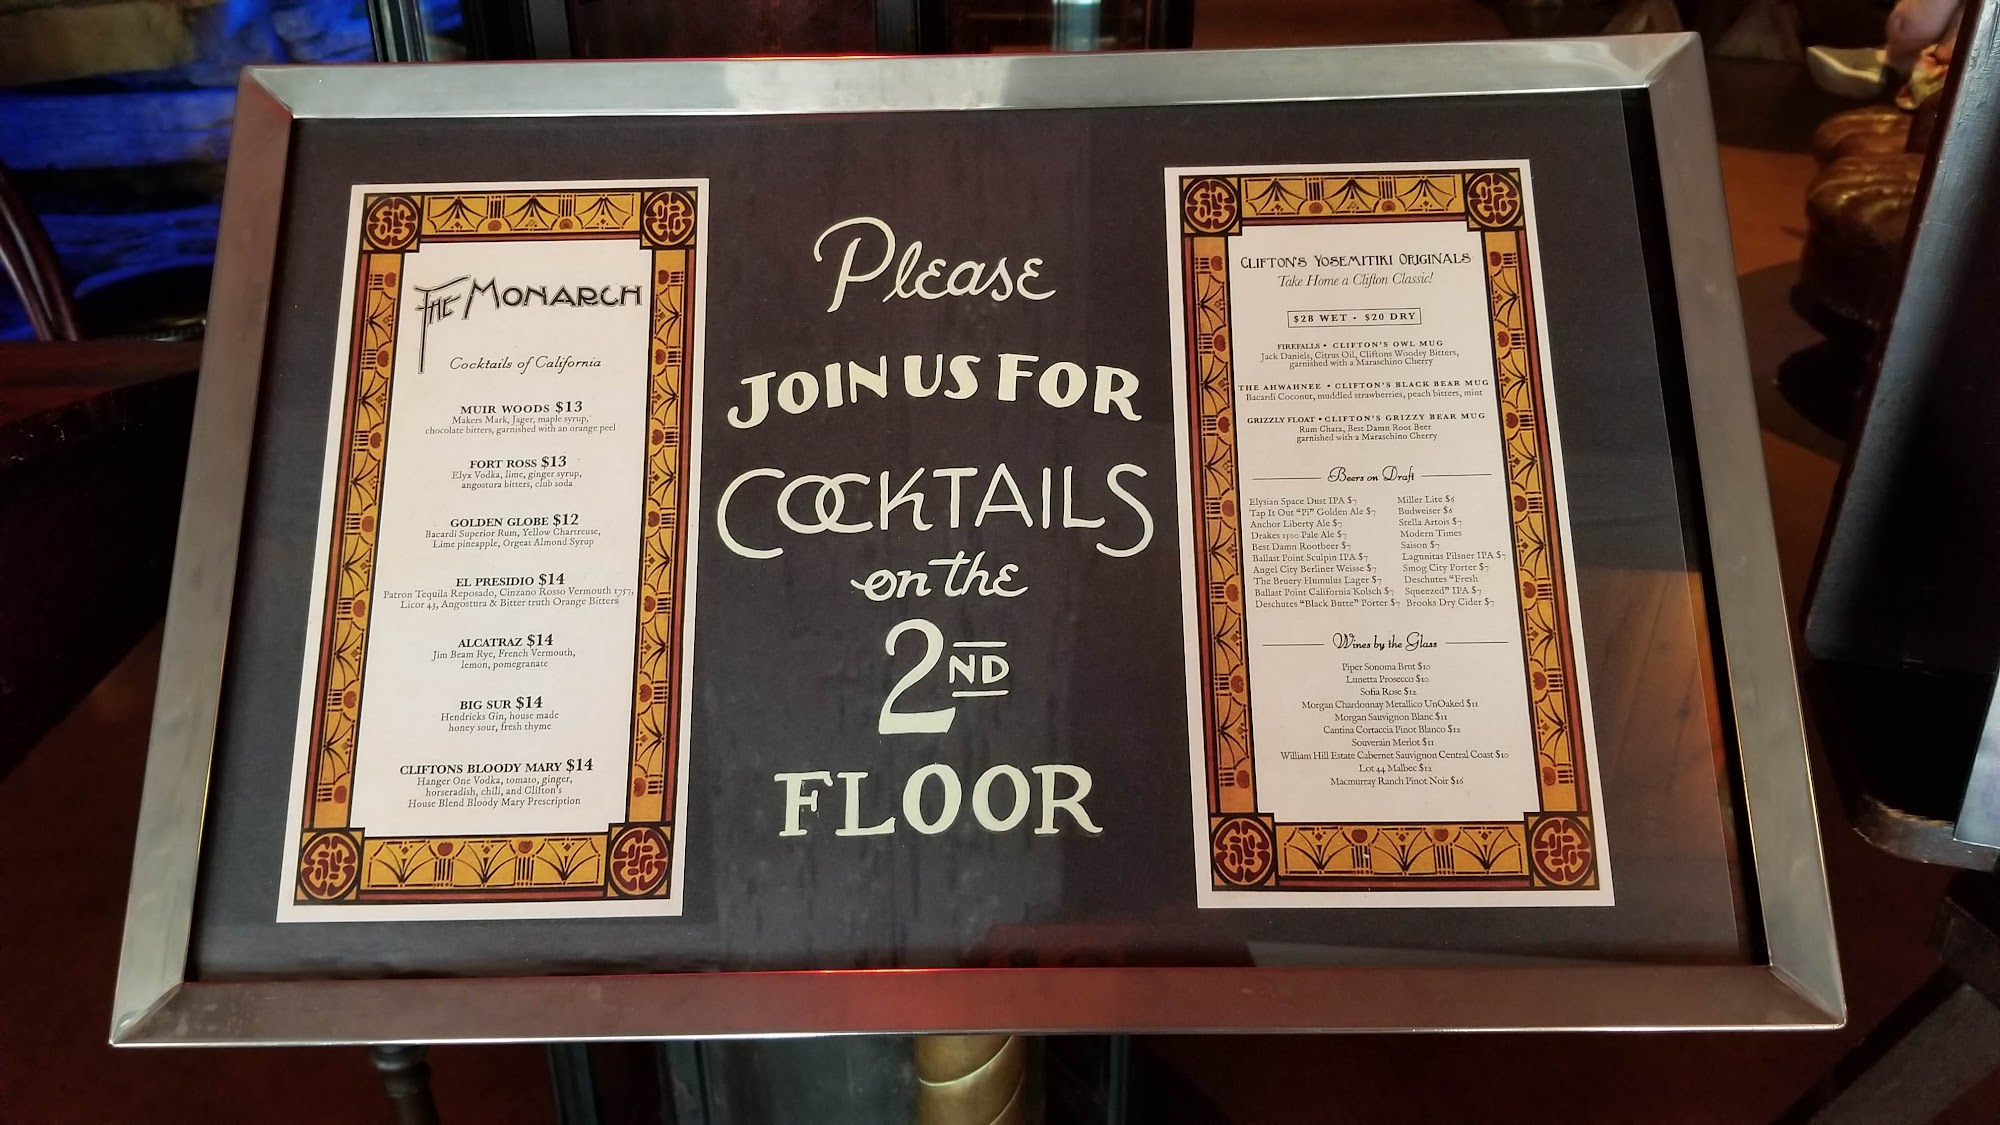 THE MONARCH
Cocktails of California
MUIR WOODS $13
Makers Mark, Jager, maple syrup,
chocolate bitters, garnished with an orange peel
FORT ROSS $13
Elyx Vodka, lime, ginger syrup,
angostura bitters, club soda
GOLDEN GLOBE $12
Bacardi Superior Rum, Yellow Chartreuse,
Lime pineapple, Orgeat Almond Syrup
EL PRESIDIO $14
Patron Tequila Reposado, Cinzano Rosso Vermouth 1757,
Licor 43, Angostura & Bitter truth Orange Bitters
ALCATRAZ $14
Jim Beam Rye, French Vermouth,
lemon, pomegranate
BIG SUR $14
Hendricks Gin, house made
honey sour, fresh thyme
CLIFTONS BLOODY MARY $14
Hanger One Vodka, tomato, ginger,
horseradish, chili, and Clifton's
House Blend Bloody Mary Prescription
Please
JOIN US FOR
COCKTAILS
on the
2ND
FLOOR
CLIFTON'S YOSEMITIKI ORIGINALS
Take Home a Clifton Classic!
$28 WET • $20 DRY
FIREFALLS • CLIFTON'S OWL MUG
Jack Daniels, Citrus Oil, Cliftons Woodsy Bitters,
garnished with a Maraschino Cherry
THE AHWAHNEE • CLIFTON'S BLACK BEAR MUG
Bacardi Coconut, muddled strawberries, peach bitters, mint
GRIZZLY FLOAT • CLIFTON'S GRIZZY BEAR MUG
Rum Chata, Best Damn Root Beer
garnished with a Maraschino Cherry
Beers on Draft
Elysian Space Dust IPA $7
Tap It Out "Pi" Golden Ale $7
Anchor Liberty Ale $7
Drakes 1500 Pale Ale $7
Best Damn Rootbeer $7
Ballast Point Sculpin IPA $7
Angel City Berliner Weisse $7
The Bruery Humulus Lager $7
Ballast Point California Kolsch $7
Deschutes "Black Butte" Porter $7
Miller Lite $6
Budweiser $6
Stella Artois $7
Modern Times
Saison $7
Lagunitas Pilsner IPA $7
Smog City Porter $7
Deschutes "Fresh
Squeezed" IPA $7
Brooks Dry Cider $7
Wines by the Glass
Piper Sonoma Brut $10
Lunetta Prosecco $10
Sofia Rose $12
Morgan Chardonnay Metallico UnOaked $11
Morgan Sauvignon Blanc $11
Cantina Cortaccia Pinot Blanco $12
Souverain Merlot $11
William Hill Estate Cabernet Sauvignon Central Coast $10
Lot 44 Malbec $12
Macmurray Ranch Pinot Noir $16